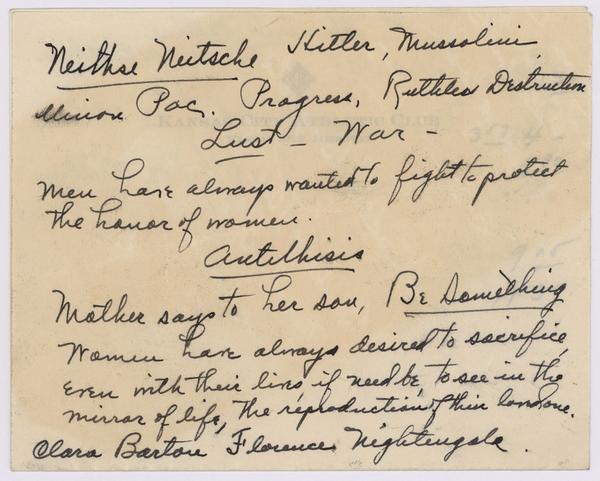 Neithse Neitsche Hitler, Mussolini
Union Pac. Progress, Ruthless Destruction
Lust - War -
Men have always wanted to fight to protect
the honor of women.
Antithisis
Mother says to her son, Be Something
Women have always desired to sacrifice,
even with their lives, if need be, to see in the
mirror of life, the reproduction of their
Clara Barton Florence Nightengale.
Kansas City Athletic Club